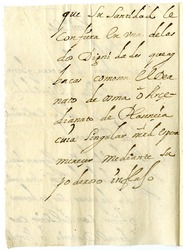 que Su Santidad le
Confiera en Una delas
dos Dignidades que ay
bacas como en el Dea
nato de osma o Arce
dianato de Plasencia
cuia singular mrd espera
merecer mediante su
poderoso influjo